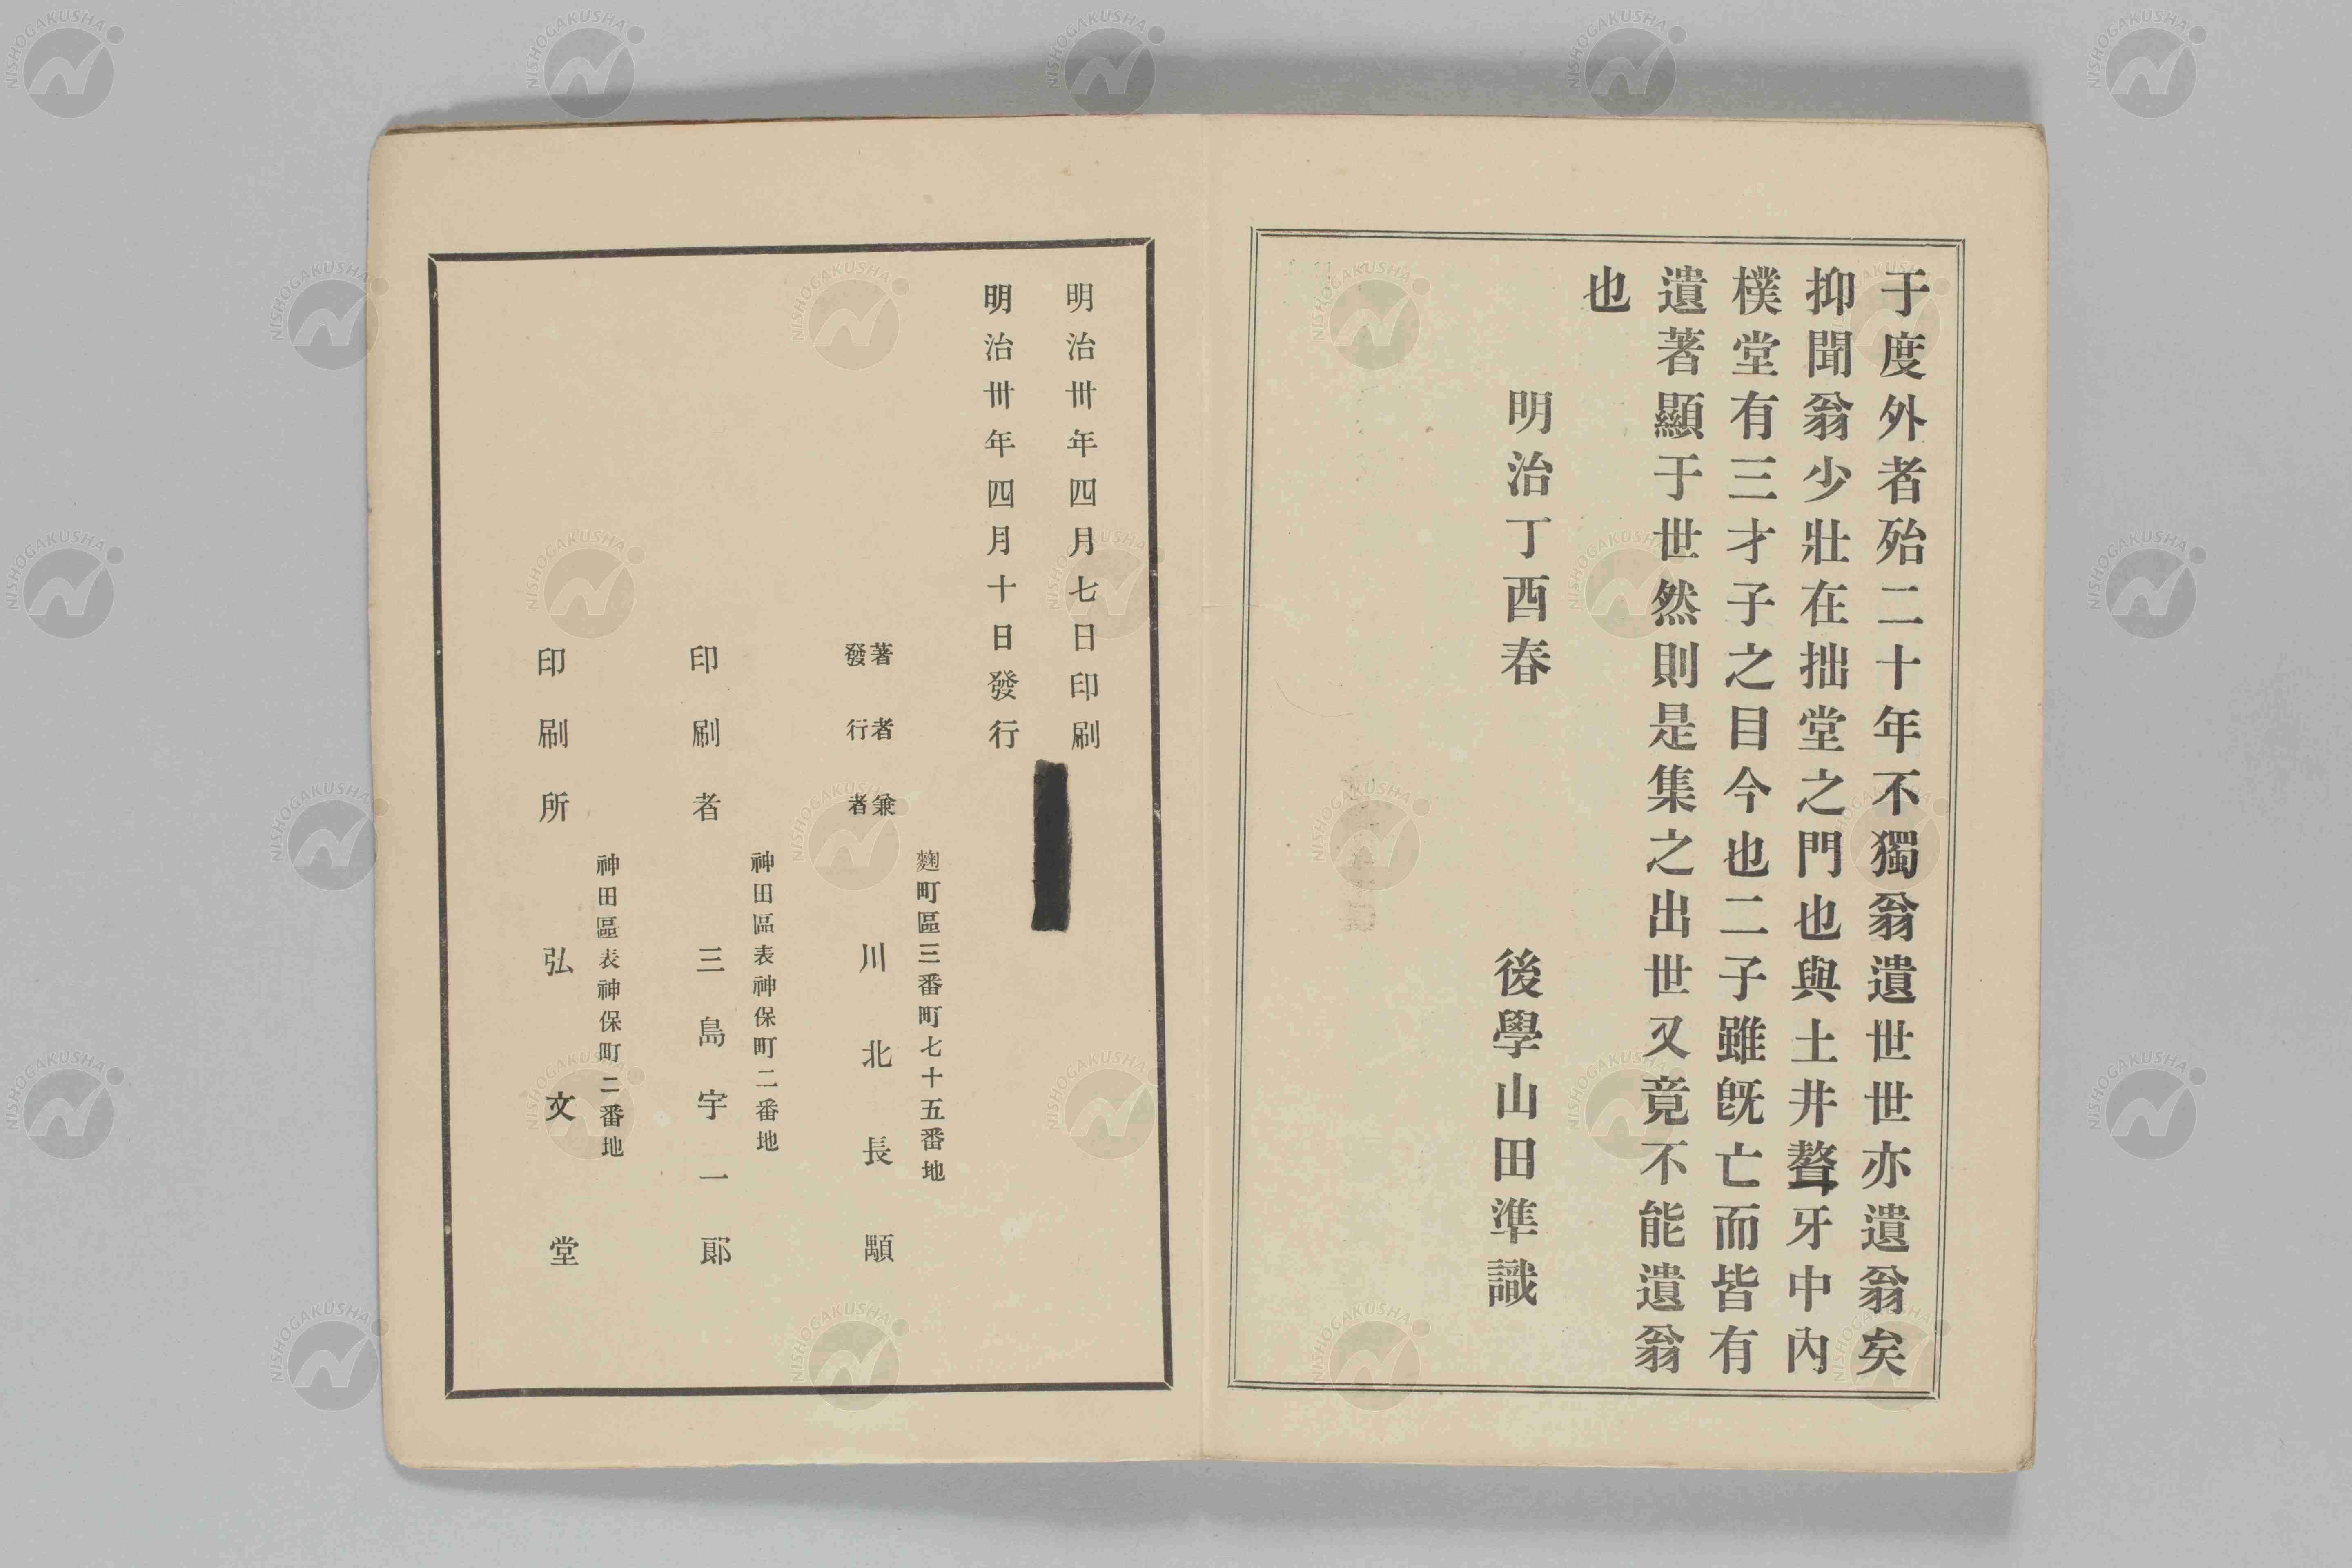 于度外者殆二十年不獨翁遺世世亦遺翁矣
抑聞翁少壯在拙堂之門也與土井聱牙中內
樸堂有三才子之目今也二子雖旣亡而皆有
遺著顯于世然則是集之出世又竟不能遺翁
也
明治丁酉春　後學山田準識
明治卅年四月七日印刷
明治卅年四月十日發行
麴町區三番町七十五番地
著者兼
發行者
川北長顒
神田區表神保町二番地
印刷者　三島宇一郎
神田區表神保町二番地
印刷所　弘文堂
NISHOGAKUSHA